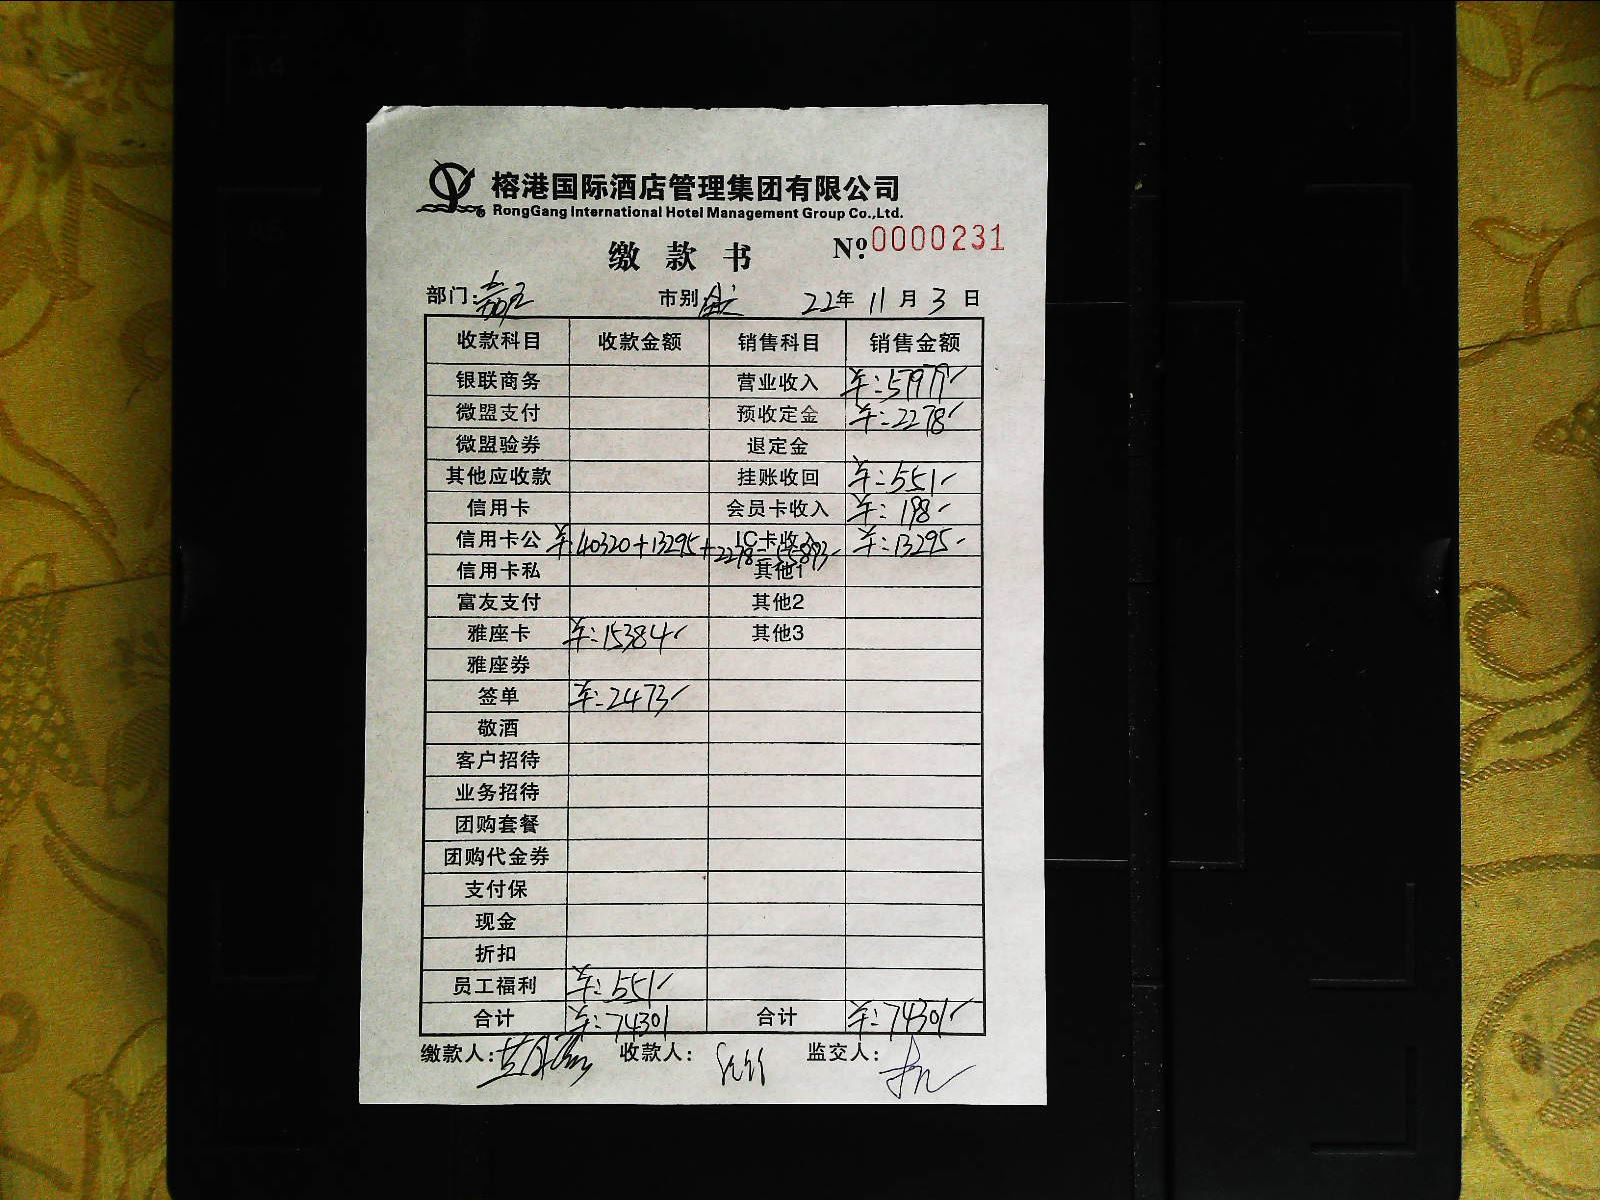 榕港国际酒店管理集团有限公司
RongGang International Hotel Management Group Co.,Ltd.
缴款书 Nº:0000231
部门: 市别: 22年11月3日
收款科目 收款金额 销售科目 销售金额
银联商务 营业收入 ¥:57979
微盟支付 预收定金 ¥:2278
微盟验券 退定金
其他应收款 挂账收回 ¥:551
信用卡 会员卡收入 ¥:198
信用卡公 ¥:40320+13295+2278=55893 IC卡收入 ¥:13295
信用卡私 其他1
富友支付 其他2
雅座卡 ¥:15384 其他3
雅座券
签单 ¥:2473
敬酒
客户招待
业务招待
团购套餐
团购代金券
支付保
现金
折扣
员工福利 ¥:551
合计 ¥:74301 合计 ¥:74301
缴款人: 收款人: 监交人: